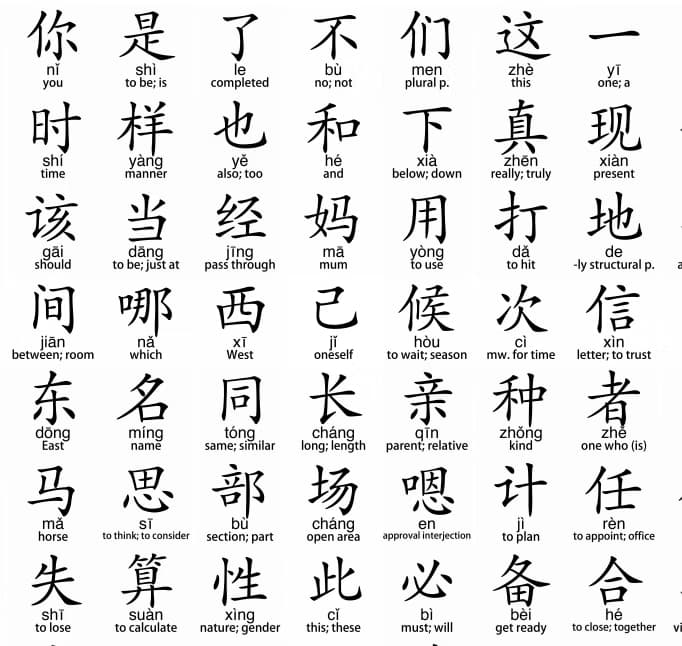 你 是 了 不 们 这 一
nǐ shì le bù men zhè yī
you to be; is completed no; not plural p. this one; a
时 样 也 和 下 真 现
shí yàng yě hé xià zhēn xiàn
time manner also; too and below; down really; truly present
该 当 经 妈 用 打 地
gāi dāng jīng mā yòng dǎ de
should to be; just at pass through mum to use to hit -ly structural p.
间 哪 西 己 候 次 信
jiān nǎ xī jǐ hòu cì xìn
between; room which West oneself to wait; season mw. for time letter; to trust
东 名 同 长 亲 种 者
dōng míng tóng cháng qīn zhǒng zhě
East name same; similar long; length parent; relative kind one who (is)
马 思 部 场 嗯 计 任
mǎ sī bù cháng en jì rèn
horse to think; to consider section; part open area approval interjection to plan to appoint; office
失 算 性 此 必 备 合
shī suàn xìng cǐ bì bèi hé
to lose to calculate nature; gender this; these must; will get ready to close; together